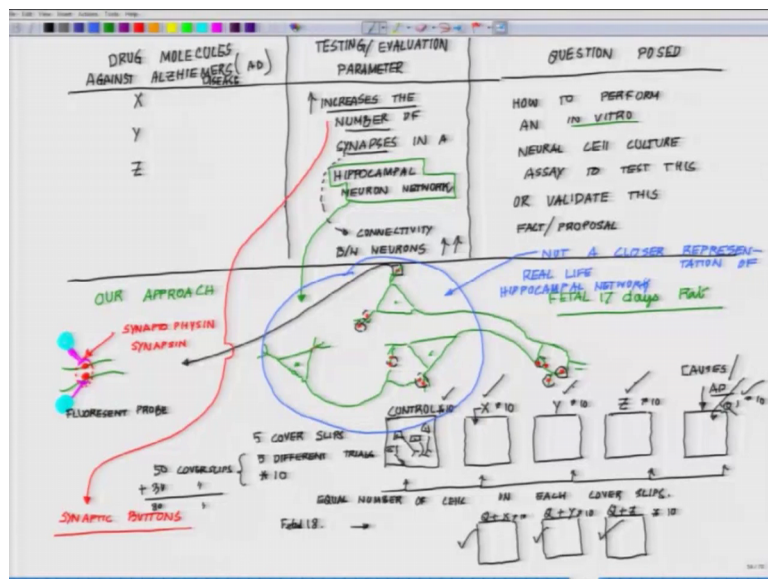 DRUG MOLECULES
AGAINST ALZHIEMERS (AD)
DISEASE
X
Y
Z
TESTING/EVALUATION
PARAMETER
↑ INCREASES THE
NUMBER OF
SYNAPSES IN A
HIPPOCAMPAL
NEURON NETWORK
CONNECTIVITY
B/W NEURONS ↑↑
QUESTION POSED
HOW TO PERFORM
AN IN VITRO
NEURAL CELL CULTURE
ASSAY TO TEST THIS
OR VALIDATE THIS
FACT/PROPOSAL
NOT A CLOSER REPRESEN-
TATION OF
REAL LIFE
HIPPOCAMPAL NETWORK
FETAL 17 days Rat
OUR APPROACH
SYNAPTO PHYSIN
SYNAPSIN
FLUORESENT PROBE
CAUSES/
AD
CONTROL*10
X *10
Y *10
Z *10
Q *10
5 COVER SLIPS
5 DIFFERENT TRIALS
* 10
50 COVERSLIPS
+ 30
80
EQUAL NUMBER OF CELLS IN EACH COVER SLIPS.
SYNAPTIC BUTTONS
18.
Q+X *10
Q+Y *10
Q+Z * 10